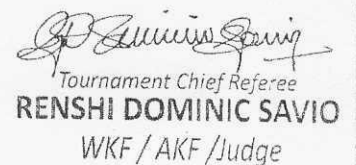 Tournament Chief Referee
RENSHI DOMINIC SAVIO
WKF / AKF /Judge